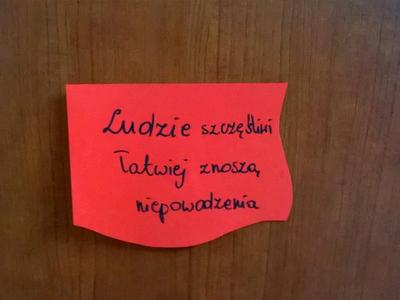 Ludzie szczęśliwi
łatwiej znoszą
niepowodzenia